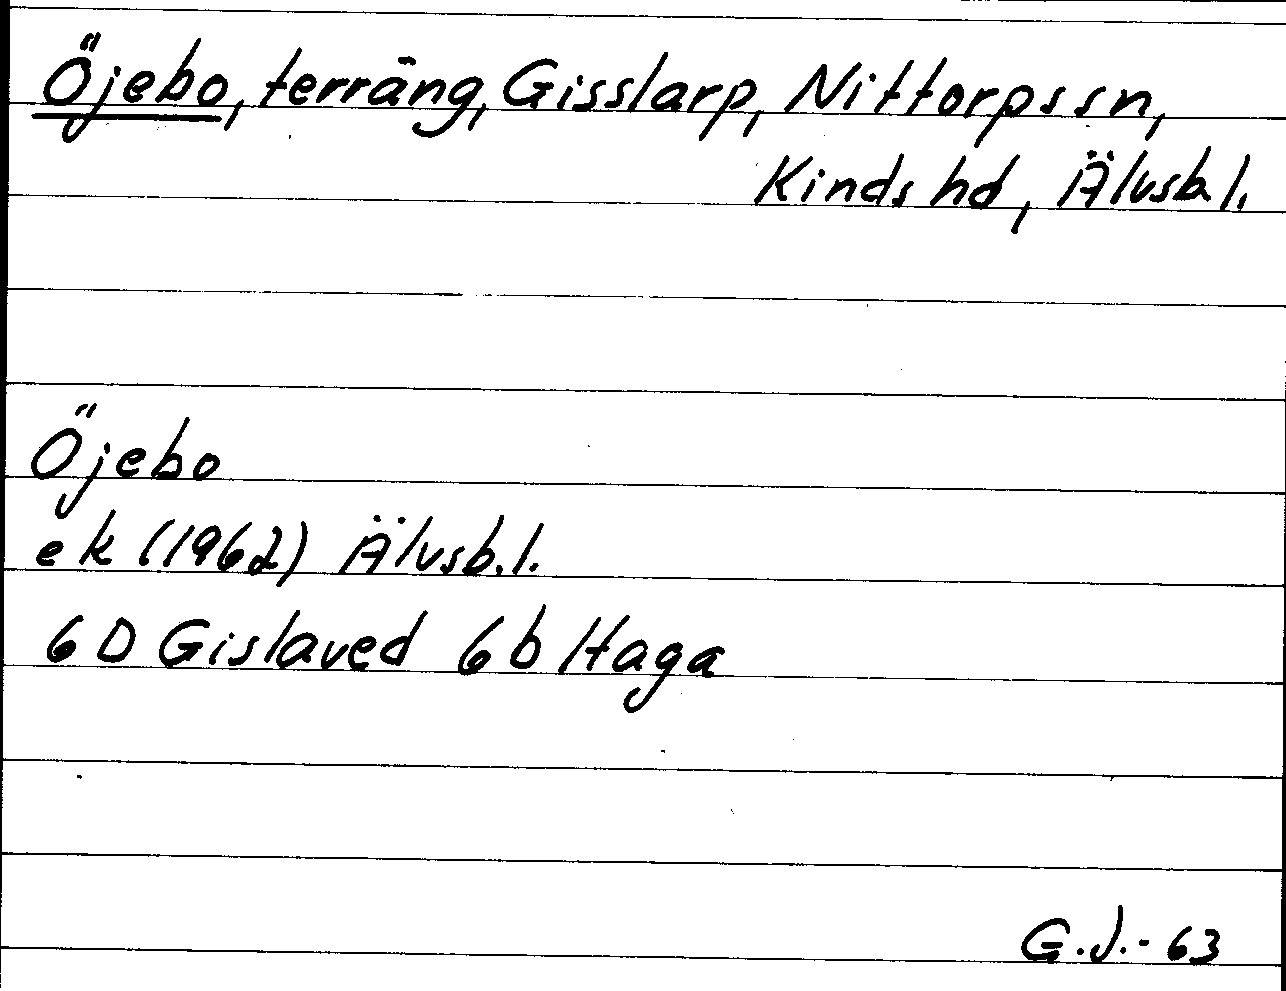 Öjebo, terräng, Gisslarp, Nittorps sn,
Kinds hd, Älvsb. l.
Öjebo
ek (1962) Älvsb. l.
6 D Gislaved 6 b Haga
G.J.-63